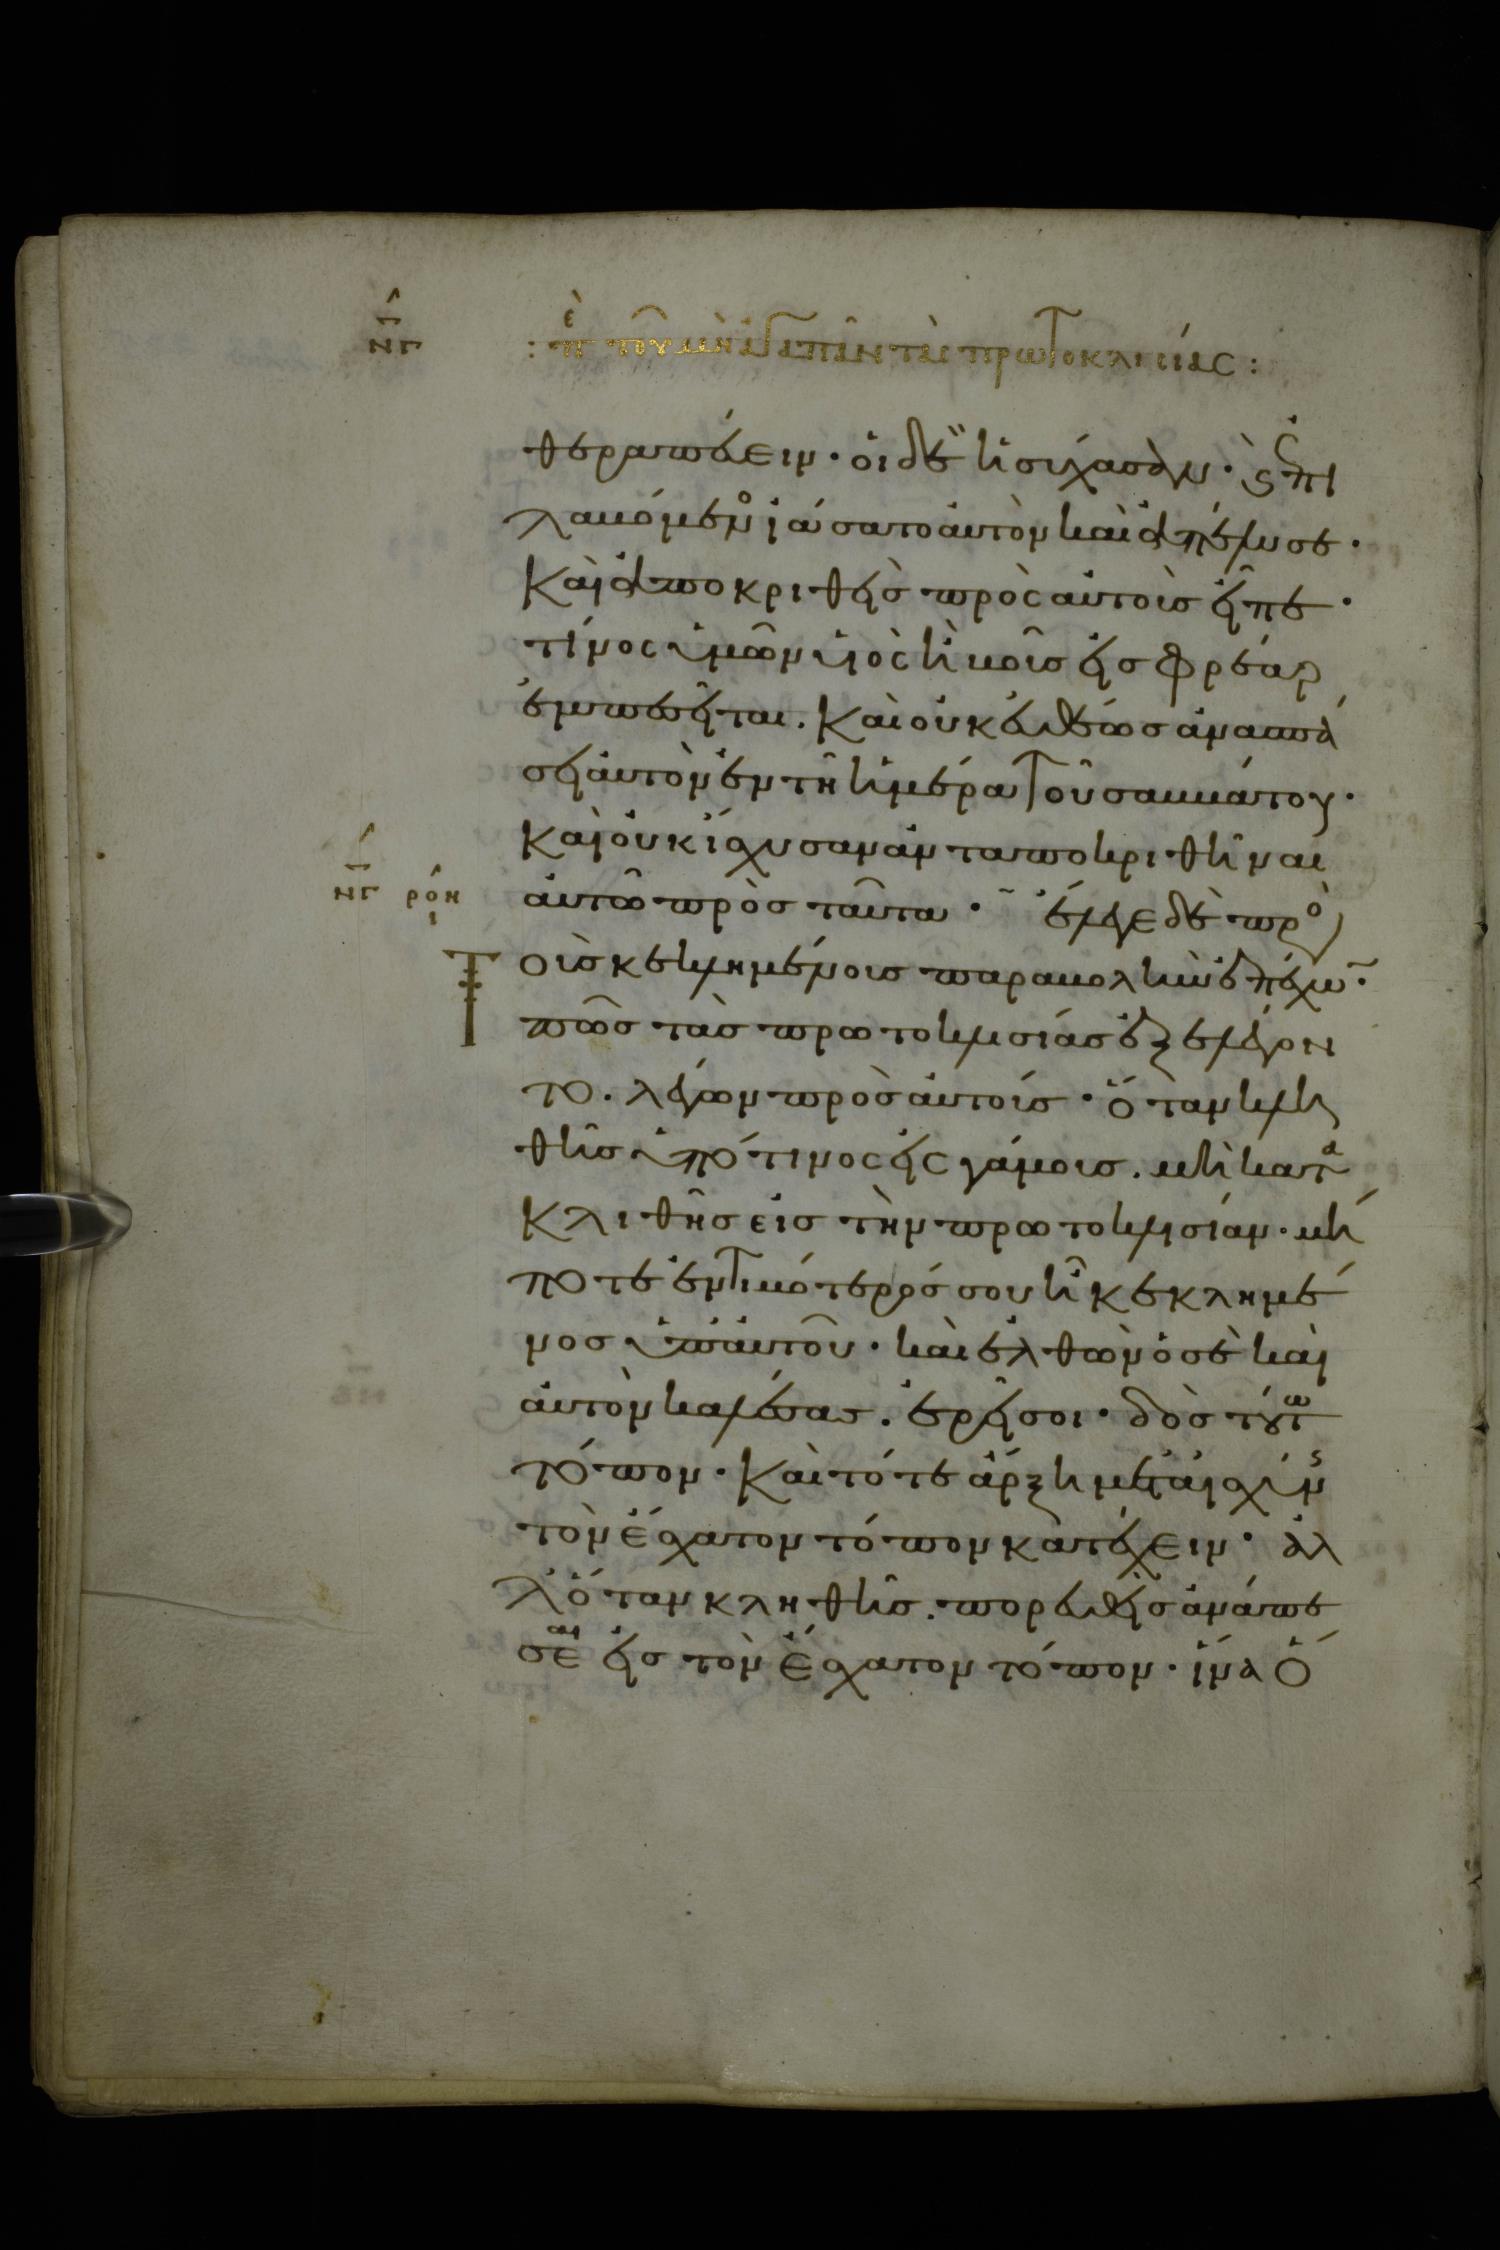 νγ
: πε τοῦ μὴ ἀγαπᾶν τὰς πρωτοκλισίας :
θεραπεύειν· οἱ δὲ ἡσύχασαν· ϗ ἐπι
λαβόμενο ἰάσατο αὐτὸν καὶ ἀπέλυσε·
Καὶ ἀποκριθεὶς πρὸς αὐτοὺς εἶπε·
τίνος ὑμῶν υἱὸς ἢ βοῦς εἰς φρέαρ
ἐμπεσεῖται. Καὶ οὐκ εὐθέως ἀνασπά
σει αὐτὸν ἐν τῆ ἡμέρα τοῦ σαββάτου·
Καὶ οὐκ ἴσχυσαν ἀνταποκριθῆναι
νγ ροη ι αὐτῶ πρὸς ταῦτα· ἔλεγε δὲ πρὸ
Τοὺς κεκλημένους παραβολὴν ἐπέχων·
πῶς τὰς πρωτοκλισίας ἐξελέγον
το. λέγων πρὸς αὐτούς· ὅταν κλη
θῆς ὑπό τινος εἰς γάμους. μὴ κατα
Κλιθῆς εἰς τὴν πρωτοκλισίαν· μή
ποτε ἐντιμότερός σου ἦ κεκλημέ
νος ὑπ' αὐτοῦ· καὶ ἐλθὼν ὁ σὲ καὶ
αὐτὸν καλέσας. ἐρεῖ σοι· δὸς τούτω
τόπον· Καὶ τότε ἄρξη μετ' αἰσχύνης
τὸν ἔσχατον τόπον κατέχειν· ἀλ
λ' ὅταν κληθῆς. πορευθεὶς ἀνάπε
σε αι εἰς τὸν ἔσχατον τόπον· ἵνα ὅ